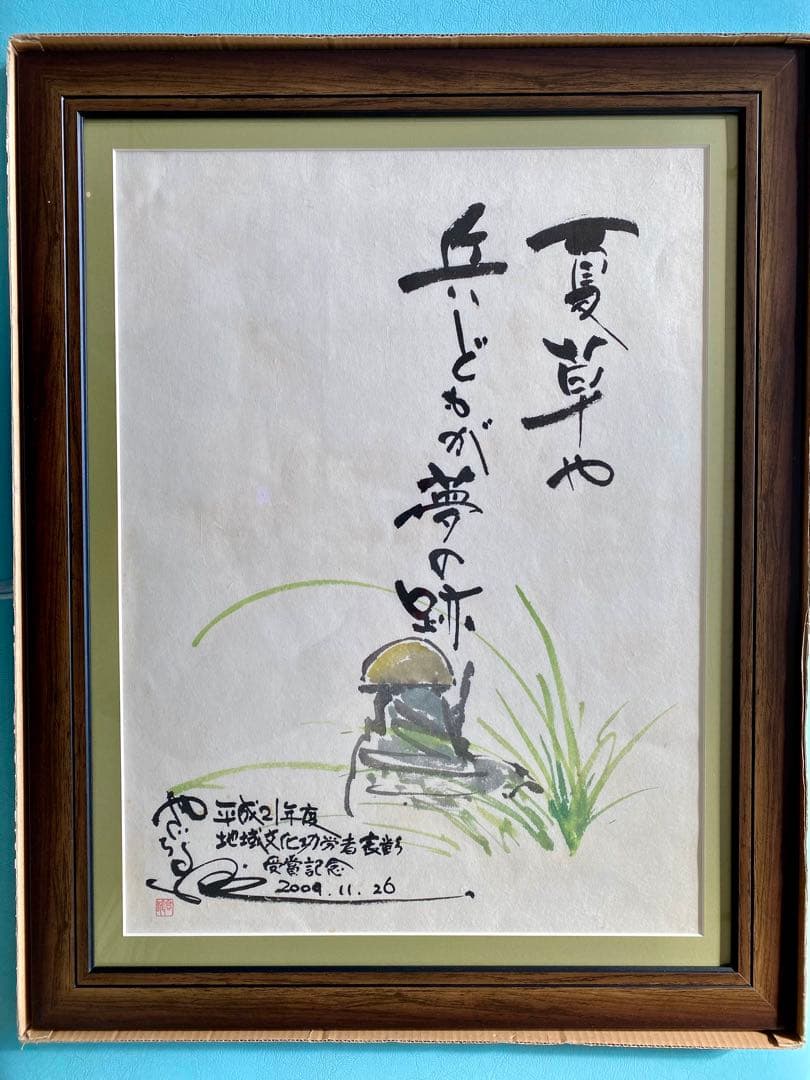 夏草や
兵どもが夢の跡
平成21年度
地域文化功労者表彰
受賞記念
2009.11.26